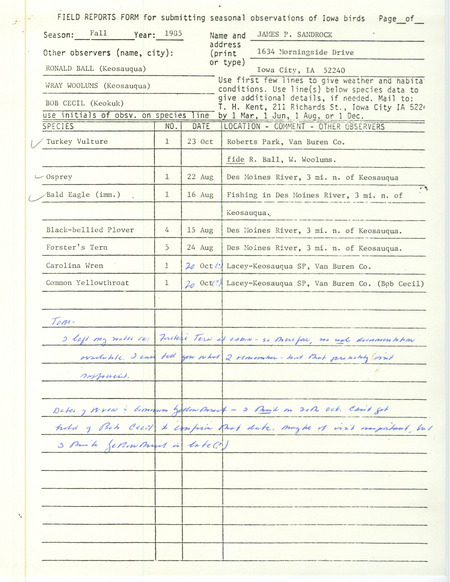 FIELD REPORTS FORM for submitting seasonal observations of Iowa birds Page of
Season: Fall Year: 1985 Name and JAMES P. SANDROCK
address
Other observers (name, city): (print 1634 Morningside Drive
or type)
RONALD BALL (Keosauqua) Iowa City, IA 52240
Use first few lines to give weather and habita
WRAY WOOLUMS (Keosauqua) conditions. Use line(s) below species data to
give additional details, if needed. Mail to:
BOB CECIL (Keokuk) T. H. Kent, 211 Richards St., Iowa City IA 522
use initials of obsv. on species line by 1 Mar, 1 Jun, 1 Aug, or 1 Dec.
SPECIES NO. DATE LOCATION - COMMENT - OTHER OBSERVERS
Turkey Vulture 1 23 Oct Roberts Park, Van Buren Co.
fide R. Ball, W. Woolums.
Osprey 1 22 Aug Des Moines River, 3 mi. n. of Keosauqua
Bald Eagle (imm.) 1 16 Aug Fishing in Des Moines River, 3 mi. n. of
Keosauqua.
Black-bellied Plover 4 15 Aug Des Moines River, 3 mi. n. of Keosauqua.
Forster's Tern 5 24 Aug Des Moines River, 3 mi. n. of Keosauqua.
Carolina Wren 1 20 Oct(?) Lacey-Keosauqua SP, Van Buren Co.
Common Yellowthroat 1 20 Oct(?) Lacey-Keosauqua SP, Van Buren Co. (Bob Cecil)
Tom-
I left my notes re: Forster's Tern at cabin - so therefore, no real documentation
available. I can tell you what I remember - but that probably isn't
sufficient.
Dates of Wren & Common Yellowthroat - I think on 20th Oct. Can't get
hold of Bob Cecil to confirm that date. Maybe it isn't important, but
I think Yellowthroat is late(?)